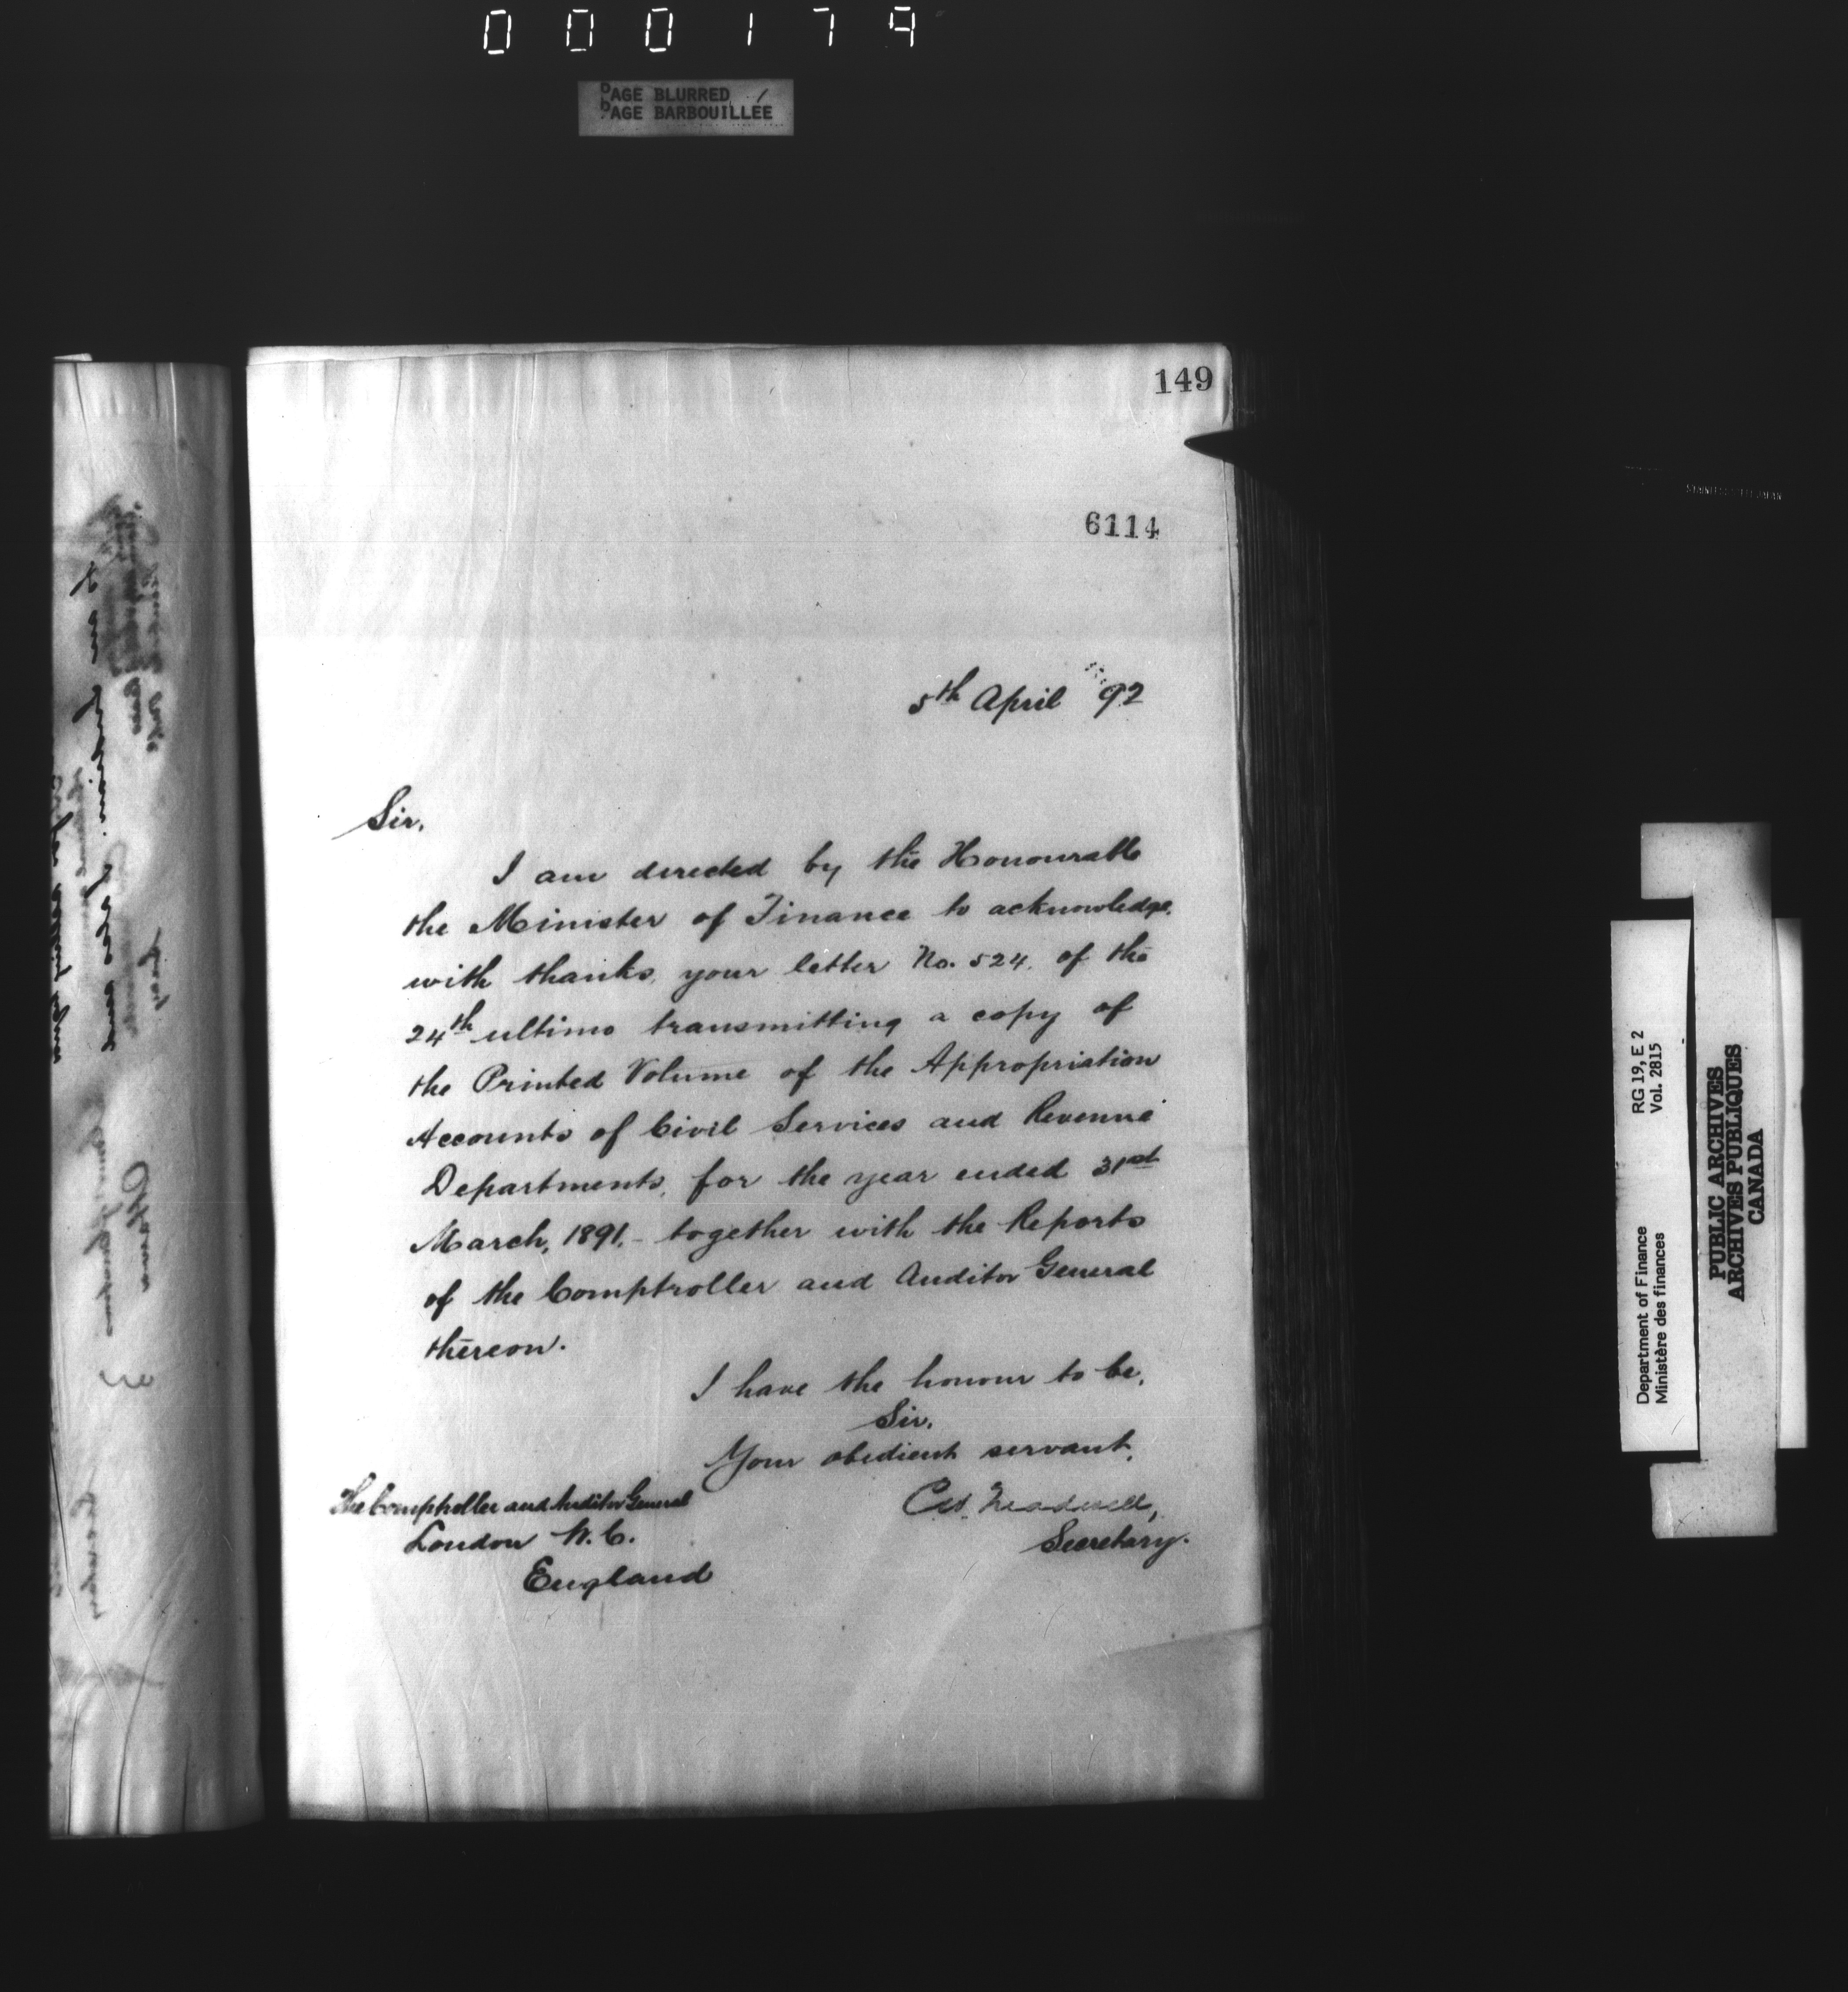 000179
PAGE BLURRED
PAGE BARBOUILLÉE
149
6114
5th April 92
Sir,
I am directed by the Honourable
the Minister of Finance to acknowledge,
with thanks, your letter No. 524, of the
24th ultimo transmitting a copy of
the Printed Volume of the Appropriation
Accounts of Civil Services and Revenue
Departments, for the year ended 31st
March, 1891, - together with the Reports
of the Comptroller and Auditor General
thereon.
I have the honour to be,
Sir,
Your obedient servant,
Secretary.
The Comptroller and Auditor General
London W.C.
England
RG 19, E 2
Vol. 2815
Department of Finance
Ministère des finances
PUBLIC ARCHIVES
ARCHIVES PUBLIQUES
CANADA